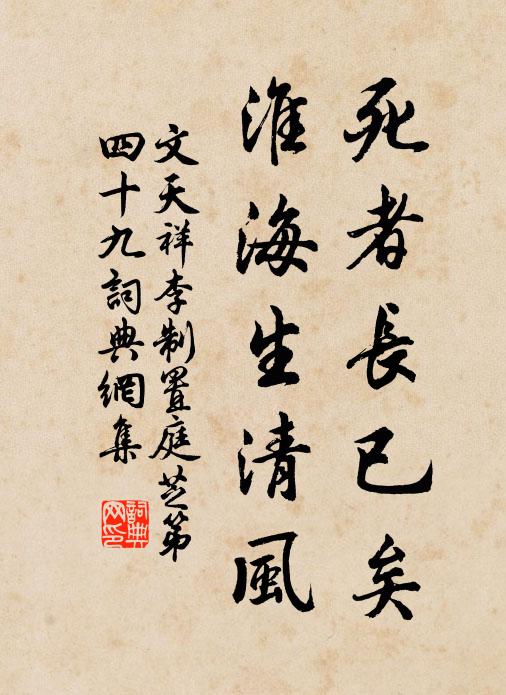 死者長已矣
淮海生清風
文天祥李制置庭芝第
四十九詞典網集
詞典
网印